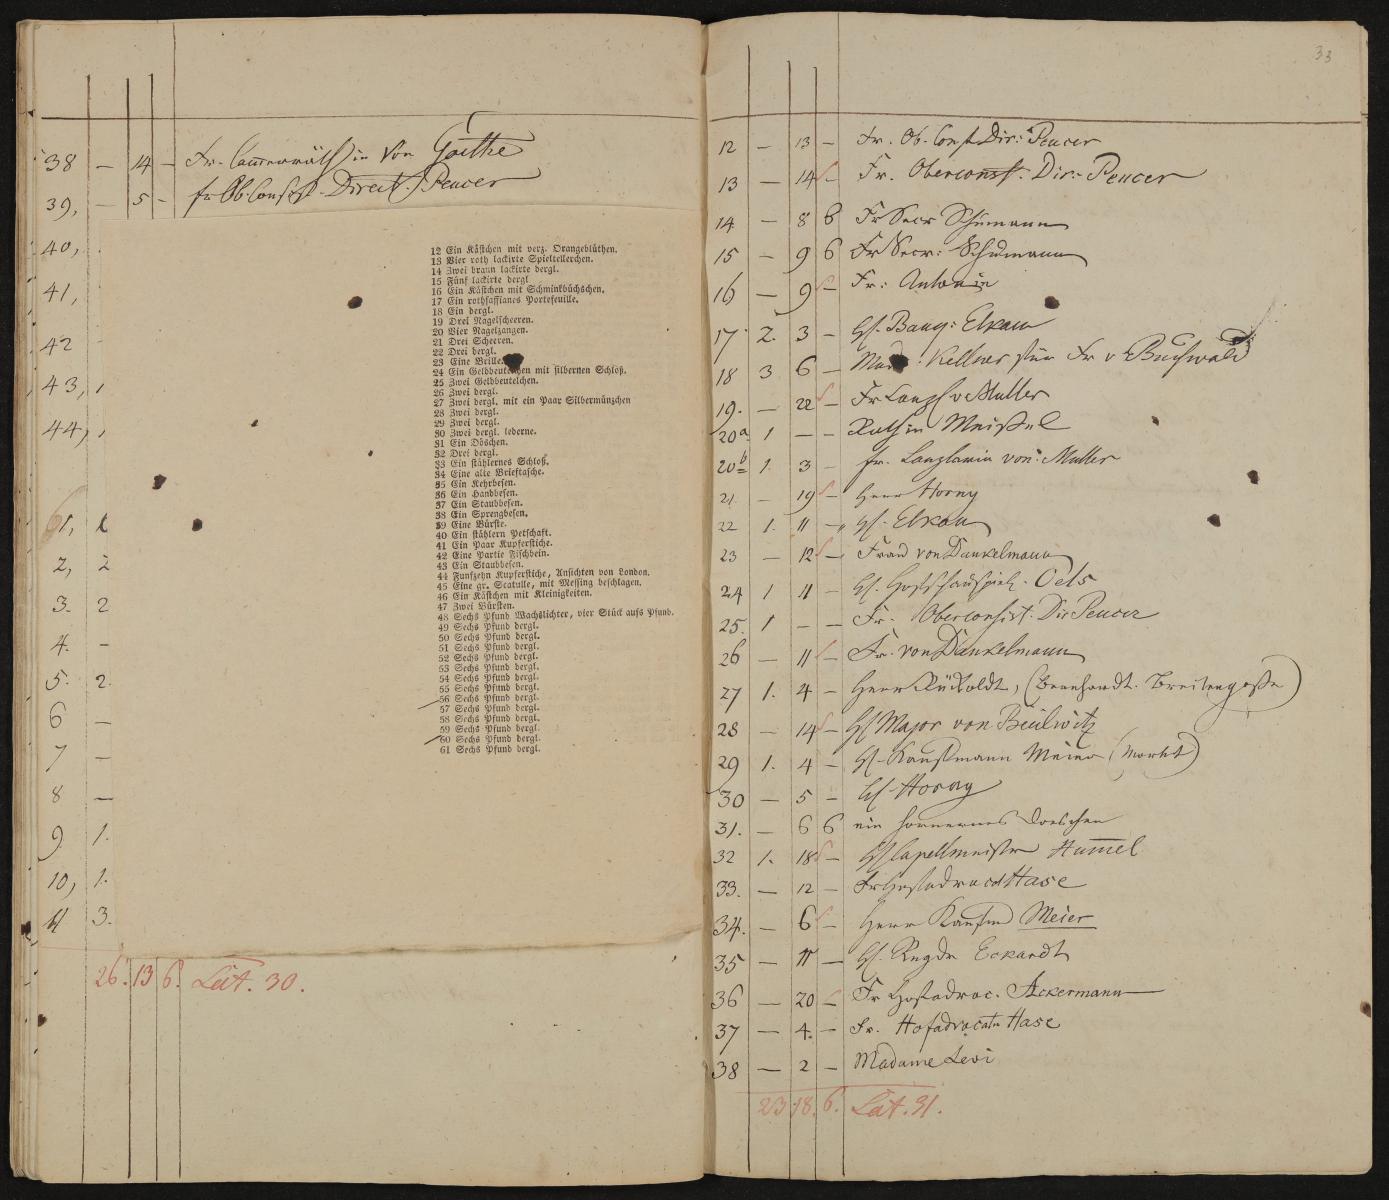 38 — 14 — Fr. Cammerräthin von Goethe
39, — 5 — fr Ob. Consist. Direct. Peucer
40,
41,
42
43, 1
44, 1
61,
2, 2
3. 2
4. -
5. 2.
6 —
7 —
8 —
9 1.
10, 1.
11 3.
26. 13 6. Lat. 30.
12 Ein Kästchen mit verz. Orangeblüthen.
13 Vier roth lackirte Spieltellerchen.
14 Zwei braun lackirte dergl.
15 Fünf lackirte dergl
16 Ein Kästchen mit Schminkbüchschen.
17 Ein rothsaffianes Portefeuille.
18 Ein dergl.
19 Drei Nagelscheeren.
20 Vier Nagelzangen.
21 Drei Scheeren.
22 Drei dergl.
23 Eine Brille.
24 Ein Geldbeutelchen mit silbernen Schloß.
25 Zwei Geldbeutelchen.
26 Zwei dergl.
27 Zwei dergl. mit ein Paar Silbermünzchen
28 Zwei dergl.
29 Zwei dergl.
30 Zwei dergl. lederne.
31 Ein Döschen.
32 Drei dergl.
33 Ein stählernes Schloß.
34 Eine alte Brieftasche.
35 Ein Kehrbesen.
36 Ein Handbesen.
37 Ein Staubbesen.
38 Ein Sprengbesen.
39 Eine Bürste.
40 Ein stählern Petschaft.
41 Ein Paar Kupferstiche.
42 Eine Partie Fischbein.
43 Ein Staubbesen.
44 Funfzehn Kupferstiche, Ansichten von London.
45 Eine gr. Scatulle, mit Messing beschlagen.
46 Ein Kästchen mit Kleinigkeiten.
47 Zwei Bürsten.
48 Sechs Pfund Wachslichter, vier Stück aufs Pfund.
49 Sechs Pfund dergl.
50 Sechs Pfund dergl.
51 Sechs Pfund dergl.
52 Sechs Pfund dergl.
53 Sechs Pfund dergl.
54 Sechs Pfund dergl.
55 Sechs Pfund dergl.
56 Sechs Pfund dergl.
57 Sechs Pfund dergl.
58 Sechs Pfund dergl.
59 Sechs Pfund dergl.
60 Sechs Pfund dergl.
61 Sechs Pfund dergl.
33
12 — 13 — Fr. Ob. Const Dir: Peucer
13 — 14 — Fr. Oberconst. Dir. Peucer
14 — 8 6 Fr Secr Schumann
15 — 9 6 Fr Secr: Schumann
16 — 9 — Fr: Antonin
17 2. 3 — H. Banq: Elkan
18 3 6 — Kellner für Fr v Buchwald
19. — 22 — Fr Canzl v Muller
20a 1 — — Rathin Meißel
20b 1. 3 — fr. Canzlarin von Muller
21 — 19 — Herr Horny
22 1. 11 — H. Elkan
23 — 12 — Frau von Dankelmann
24 1 11 — H. Hofschauspiel. Oels
25. 1 — — Fr. Oberconsist. Dir Peucer
26 — 11 — Fr. von Dankelmann
27 1. 4 — Herr Rückoldt, (Bernhardt. Breitengaße)
28 — 14 — H Major von Beulwitz
29 1. 4 — H. Kaufmann Meier (Markt)
30 — 5 — H. Horny
31. — 6 6 ein hornernes Doeschen
32 1. 18 — H Capellmeister Hummel
33. — 12 — Fr Hofadvocat Hase
34. — 6 — Herr Kaufm Meier
35 — 11 — H. Eckardt
36 — 20 — Fr Hofadvoc. Ackermann
37 — 4. — Fr. Hofadvocatin Hase
38 — 2 — Madame Levi
23 18. 6. Lat. 31.